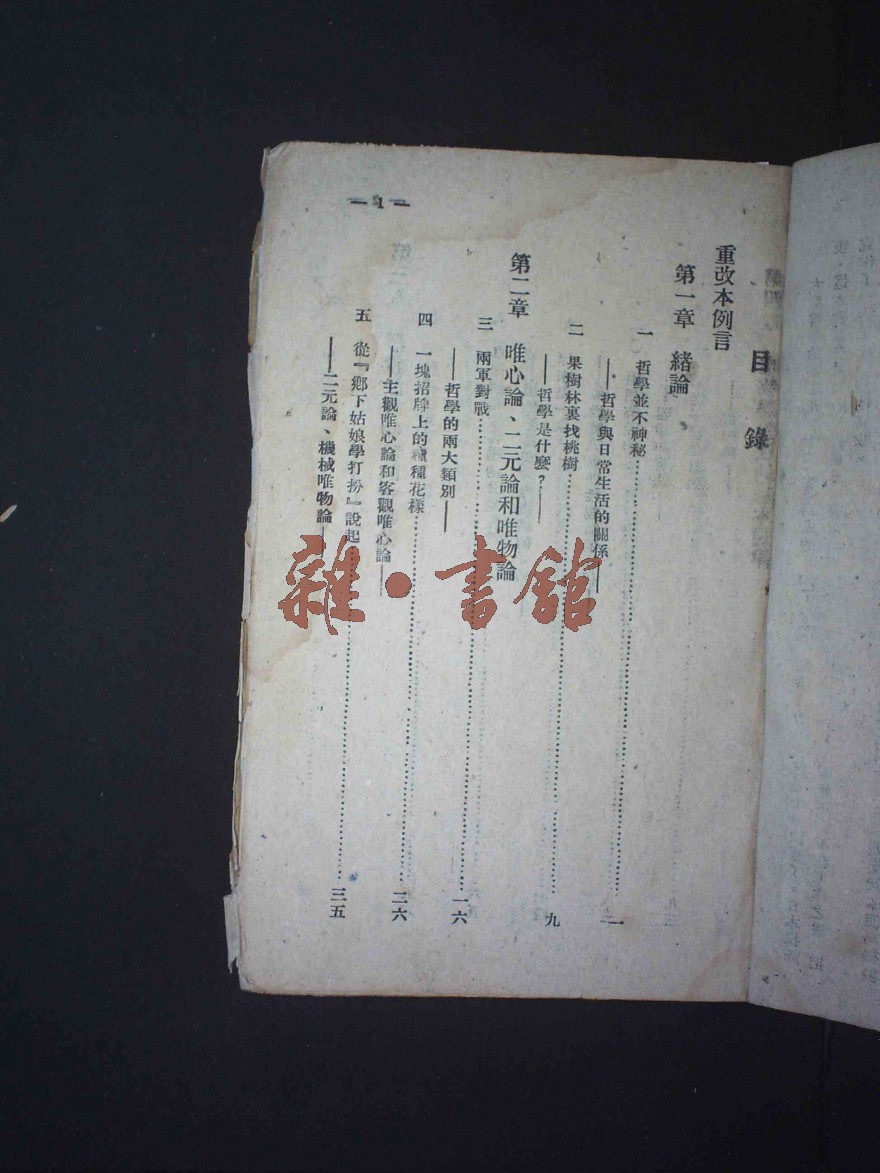 目錄
重改本例言
第一章 緒論
一 哲學並不神秘……一
——哲學與日常生活的關係——
二 果樹林裏找桃樹……九
——哲學是什麼？——
第二章 唯心論、二元論和唯物論
三 兩軍對戰……一六
——哲學的兩大類別——
四 一塊招牌上的種種花樣……二六
——主觀唯心論和客觀唯心論——
五 從『鄉下姑娘學打扮』說起……三五
——二元論、機械唯物論——
— 1 —
雜·書館